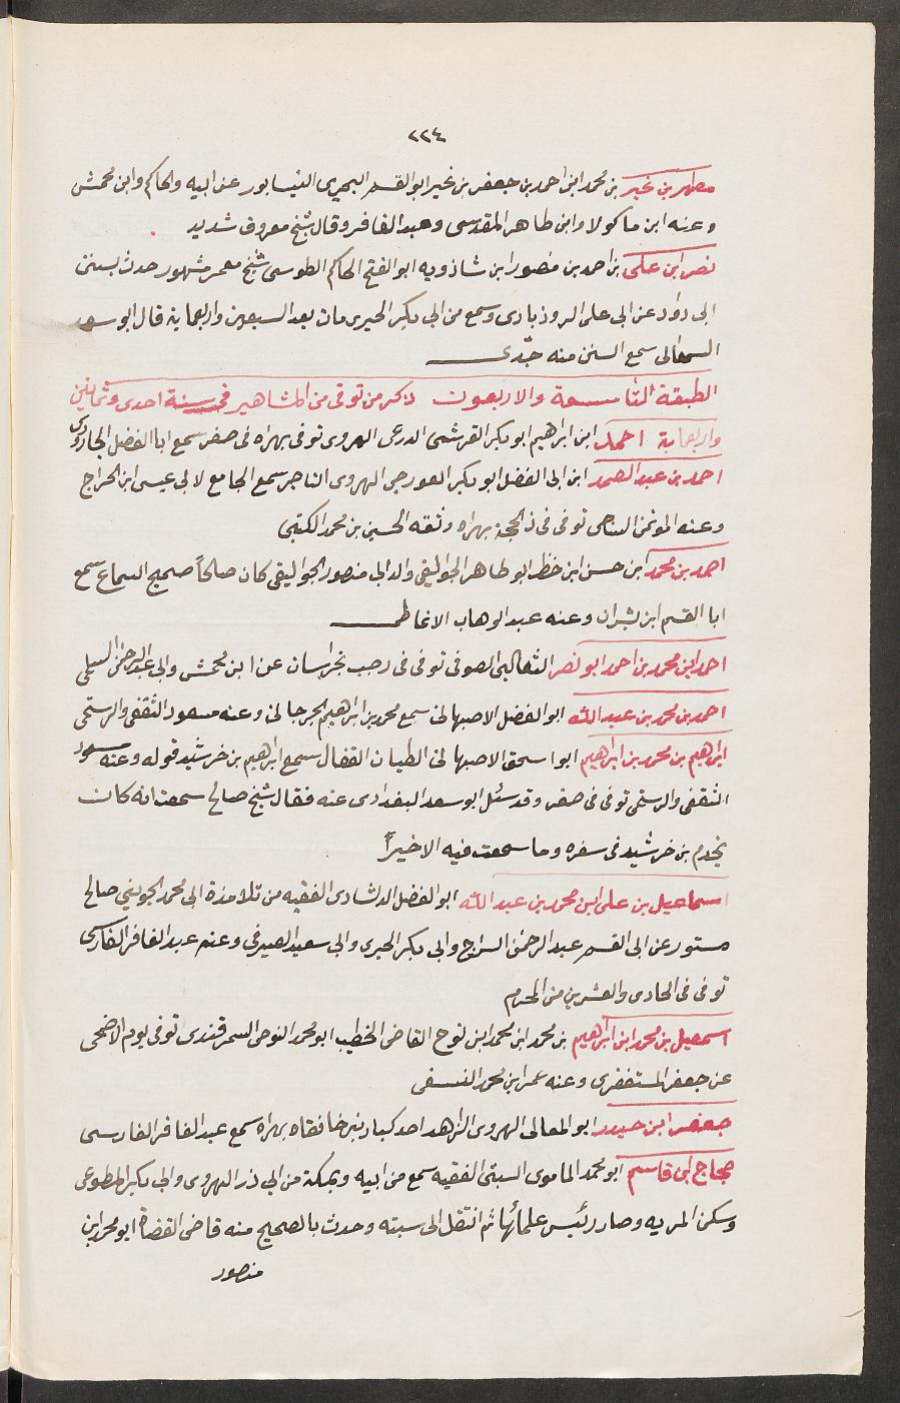 ٢٢٤
مطهر بن نحير بن محمد ابن احمد بن جعفر بن نحير ابو القسم البحيرى النيسابور عن ابيه والحاكم وابن محمش
وعنه ابن ماكولا وابن طاهر المقدسى وعبد الغافر وقال شيخ معروف شديد
نصر ابن على بن احمد بن منصور ابن شاذويه ابو الفتح الحاكم الطوسى شيخ معمر مشهور حدث بسنن
ابى داود عن ابى على الروذبادى وسمع من ابى بكر الحيرى مات بعد السبعين واربعماية قال ابو سعد
السمعانى سمع السنن منه جدى
الطبقة التاسعة والاربعون ذكر من توفى من المشاهير فى سنة احدى وثمانين
واربعماية احمد ابن ابراهيم ابو بكر القرشى الدرعى الهروى توفى بهراه فى صفر سمع ابا الفضل الجارودى
احمد بن عبد الصمد ابن ابى الفضل ابو بكر الغورجى الهروى التاجر سمع الجامع لابى عيسى ابن الجراح
وعنه الموتمن الساجى توفى فى ذالحجة بهراه وثقه الحسين بن محمد الكتبى
احمد بن محمد ابن حسن ابن خظر ابو طاهر الجواليقى والد ابى منصور الجواليقى كان صالحاً صحيح السماع سمع
ابا القسم ابن بشران وعنه عبد الوهاب الانماطى
احمد ابن محمد بن احمد ابو نصر الثعالبى الصوفى توفى فى رجب بخراسان عن ابن محمش وابى عبد الرحمن السلمى
احمد بن محمد بن عبد الله ابو الفضل الاصبهانى سمع محمد بن ابراهيم الجرجانى وعنه مسعود الثقفى والرستمى
ابراهيم بن محمد بن ابراهيم ابو اسحق الاصبهانى الطيان القفال سمع ابراهيم بن خرشيد قوله وعنه مسعود
الثقفى والرستمى توفى فى صفر وقد سئل ابو سعد البغدادى عنه فقال شيخ صالح سمعت انه كان
يخدم بن خرشيد فى سفره وما سمعت فيه الاخيراً
اسماعيل بن على ابن محمد بن عبد الله ابو الفضل الدلشادى الفقيه من تلامذة ابى محمد الجوينى صالح
مستور عن ابى القسم عبد الرحمن السراج وابى بكر الحيرى وابى سعيد الصيرفى وعنه عبد الغافر الفارسى
توفى فى الحادى والعشرين من المحرم
اسمعيل بن محمد ابن ابراهيم بن محمد ابن محمد ابن نوح القاضى الخطيب ابو محمد النوحى السمرقندى توفى يوم الاضحى
عن جعفر المستغفرى وعنه عمر ابن محمد النسفى
جعفر ابن حيدر ابو المعالى الهروى الزاهد احد كبار بنر خانقاه بهراه سمع عبد الغافر الفارسى
حجاج ابى قاسم ابو محمد الماموى السبتى الفقيه سمع من ابيه وبمكة من ابى ذر الهروى وابى بكر المطوعى
وسكن المريه وصار رئيس علمائها ثم انتقل الى سبته وحدث بالصحيح منه قاضى القضاة ابو محمد ابن
منصور